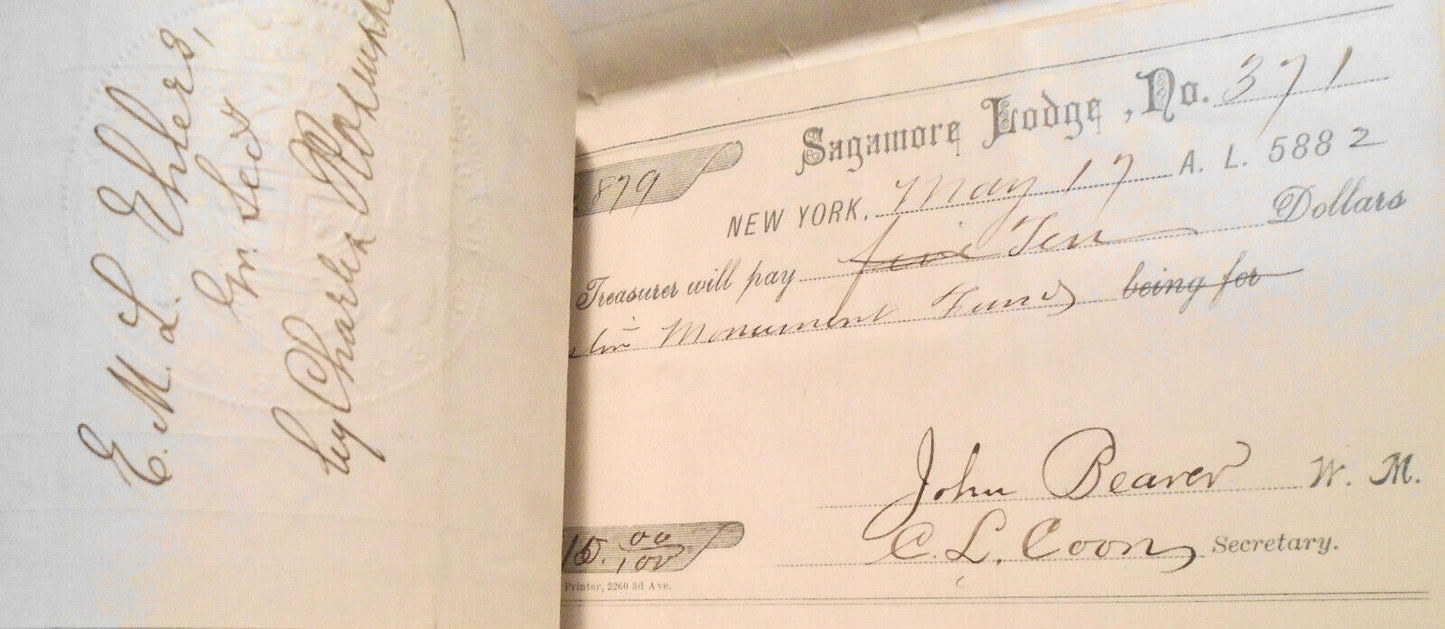 E. M. L. Ehlers,
Gr. Sec'y
by Charles
Sagamore Lodge, No. 371
879
NEW YORK, May 17 A. L. 5882
Treasurer will pay five Ten Dollars
Monument Fund being for
John Beaver W. M.
00/100
C. L. Coon, Secretary.
Printer, 2260 3d Ave.